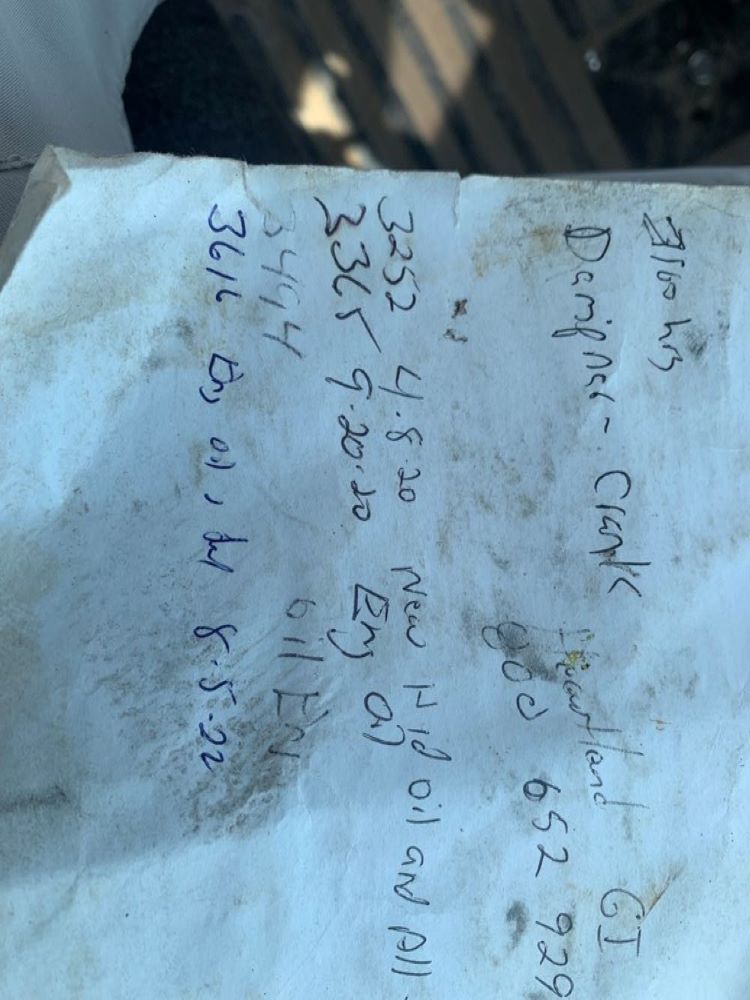 3160 hrs
Crank Heartland GI
800 652 929
3252 4.8.20 New Hid oil and All
3365 9.20.20 Eng Oil
3494 oil EN
3616 Eng oil, 8.5.22